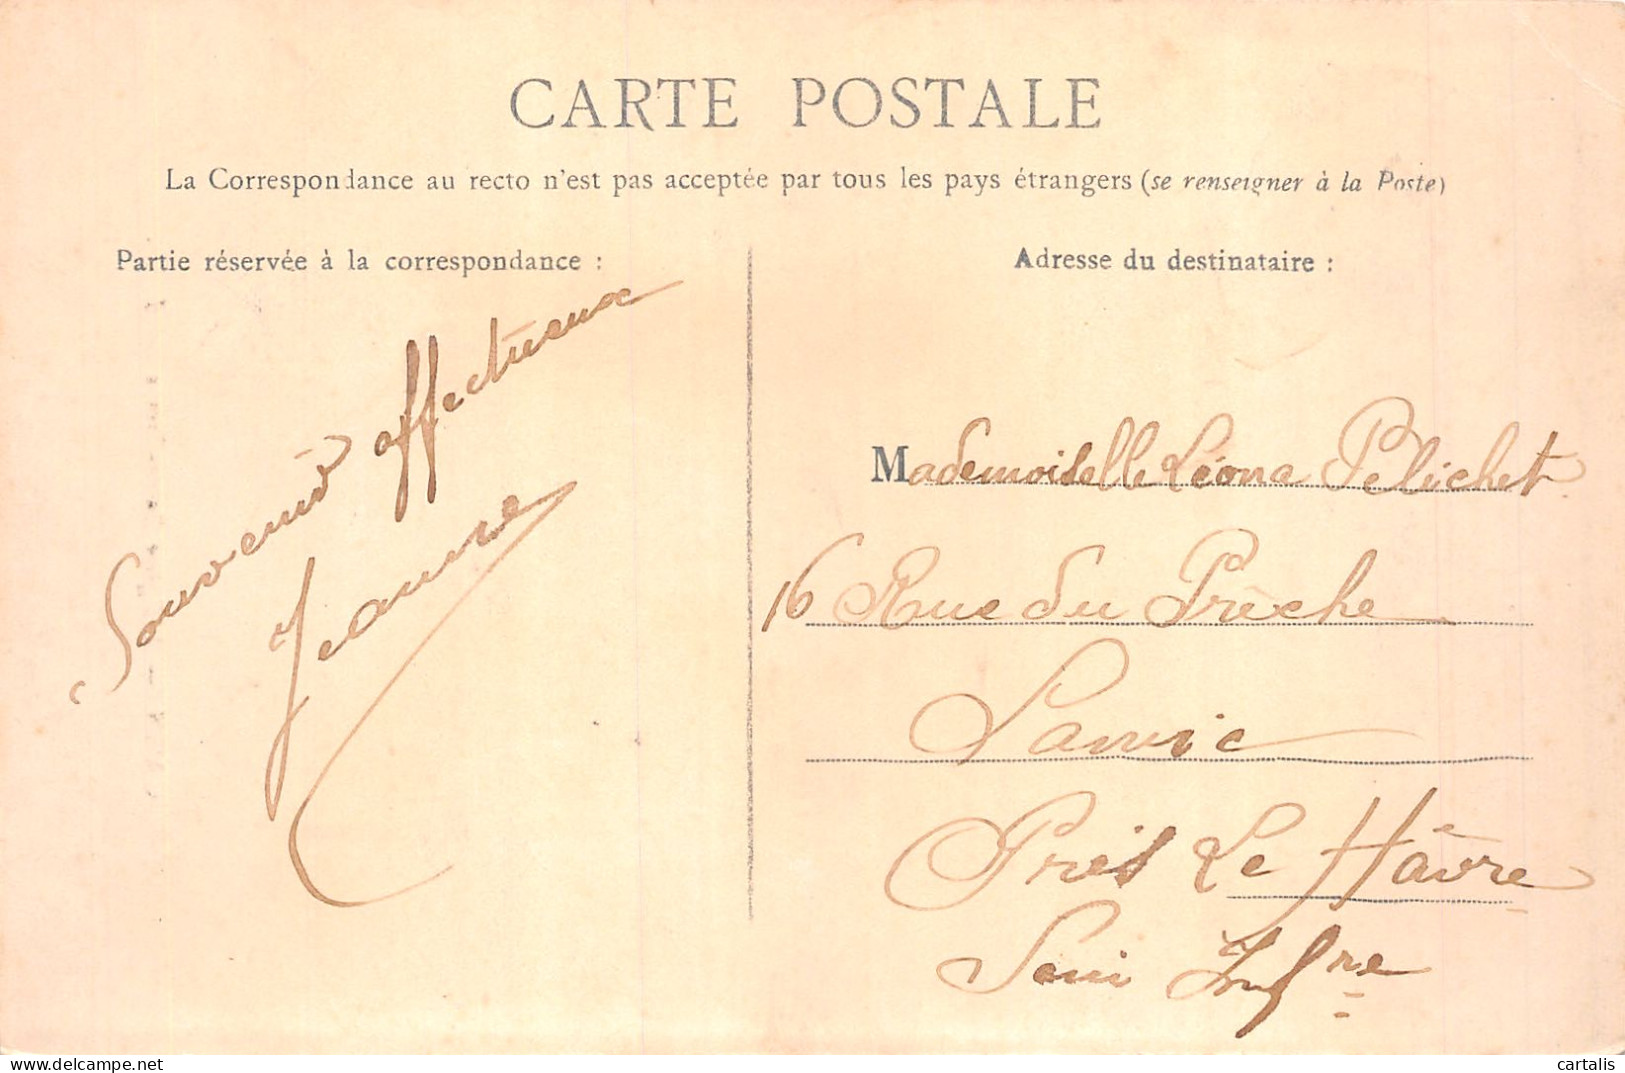 CARTE POSTALE
La Correspondance au recto n'est pas acceptée par tous les pays étrangers (se renseigner à la Poste)
Partie réservée à la correspondance :
Souvenir affectueux
Jeanne
Adresse du destinataire :
Mademoiselle Léona Pelichet
16 Rue du Prêche
Sanvic
Près Le Hâvre
Seine Infre
cartalis